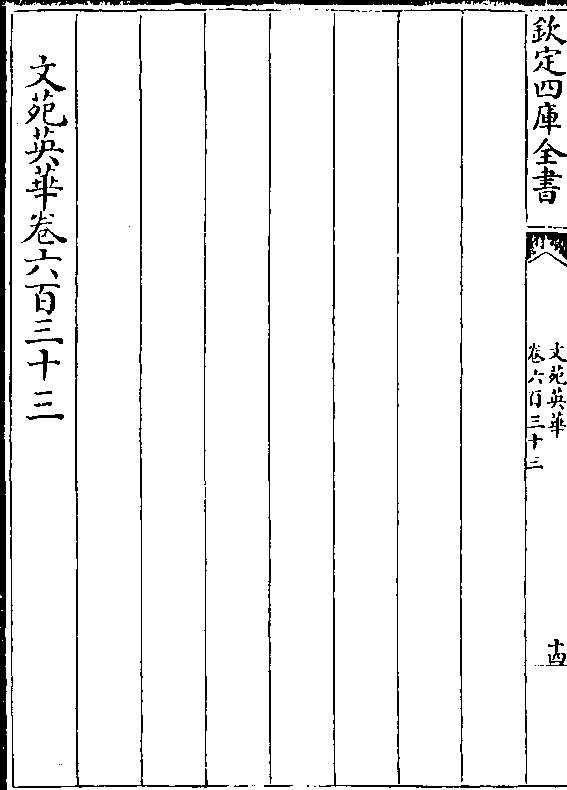 欽定四庫全書
文苑英華
卷六百三十三
十四
文苑英華卷六百三十三